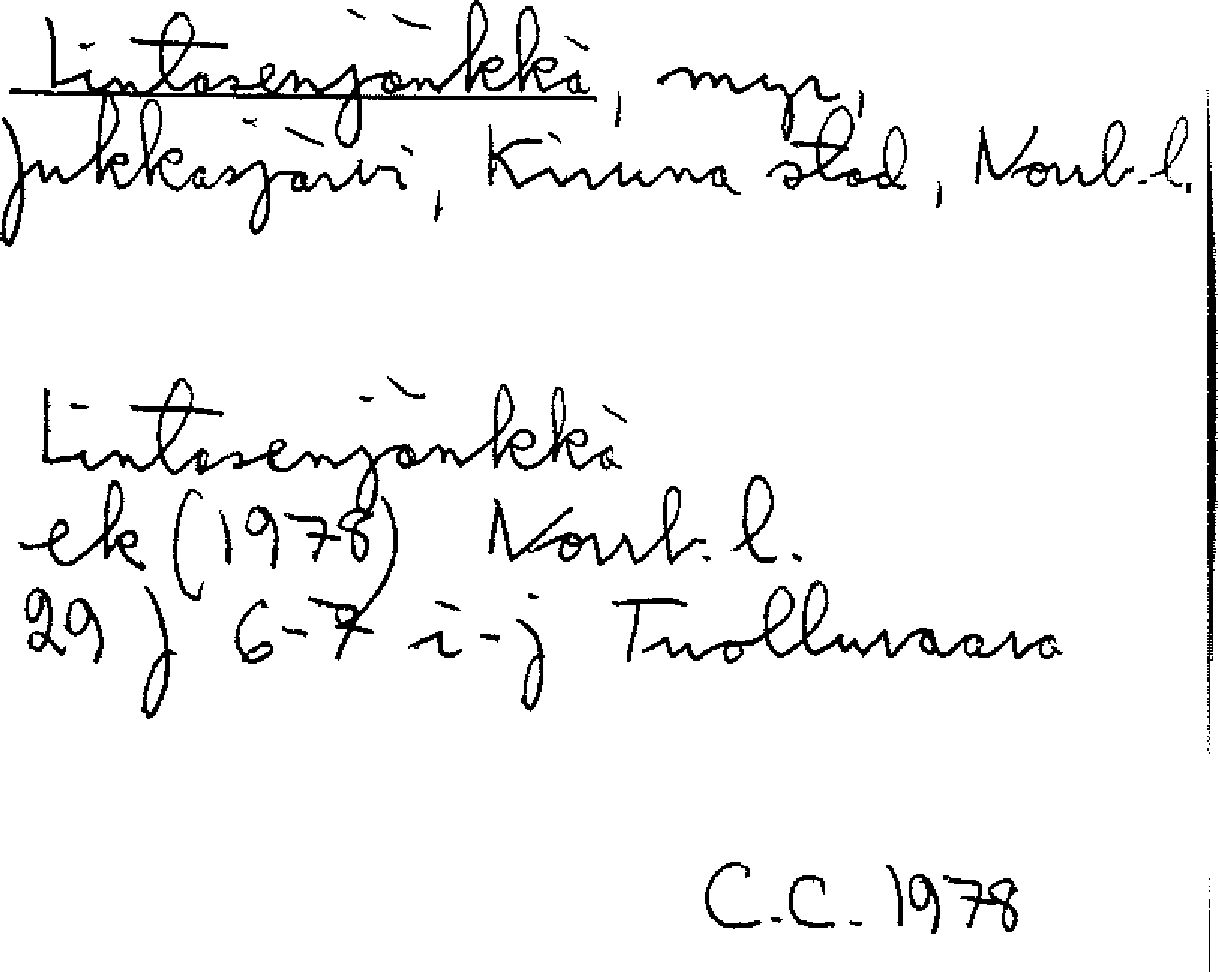 Lintasenjänkkä, myr,
Jukkasjärvi, Kiruna stad, Norrb. l.
Lintasenjänkkä
ek (1978) Norrb. l.
29 J 6-7 i-j Tuolluvaara
C.C. 1978